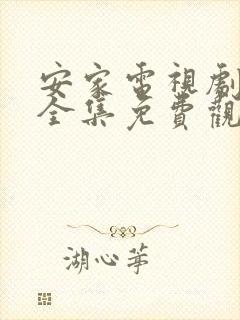 安家電視劇
全集免費觀
湖心茅